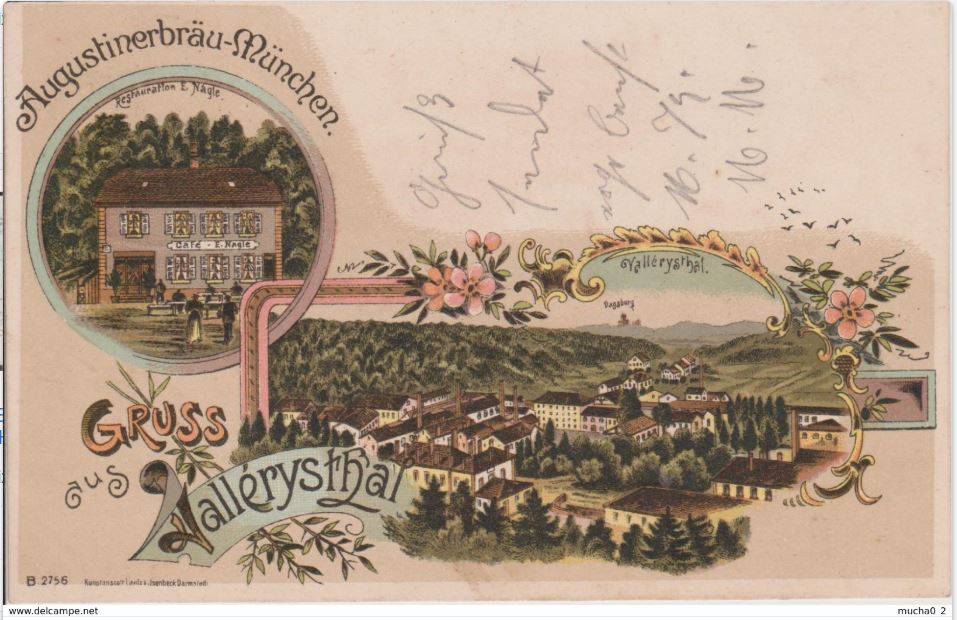 Augustinerbräu-München.
Restauration E. Nagle.
Café - E. Nagle
Gruß
Vallérysthal.
Dagsburg
GRUSS
aus
Vallérysthal
B. 2756
Kunstanstalt Lautz & Isenbeck Darmstadt
www.delcampe.net
mucha0_2